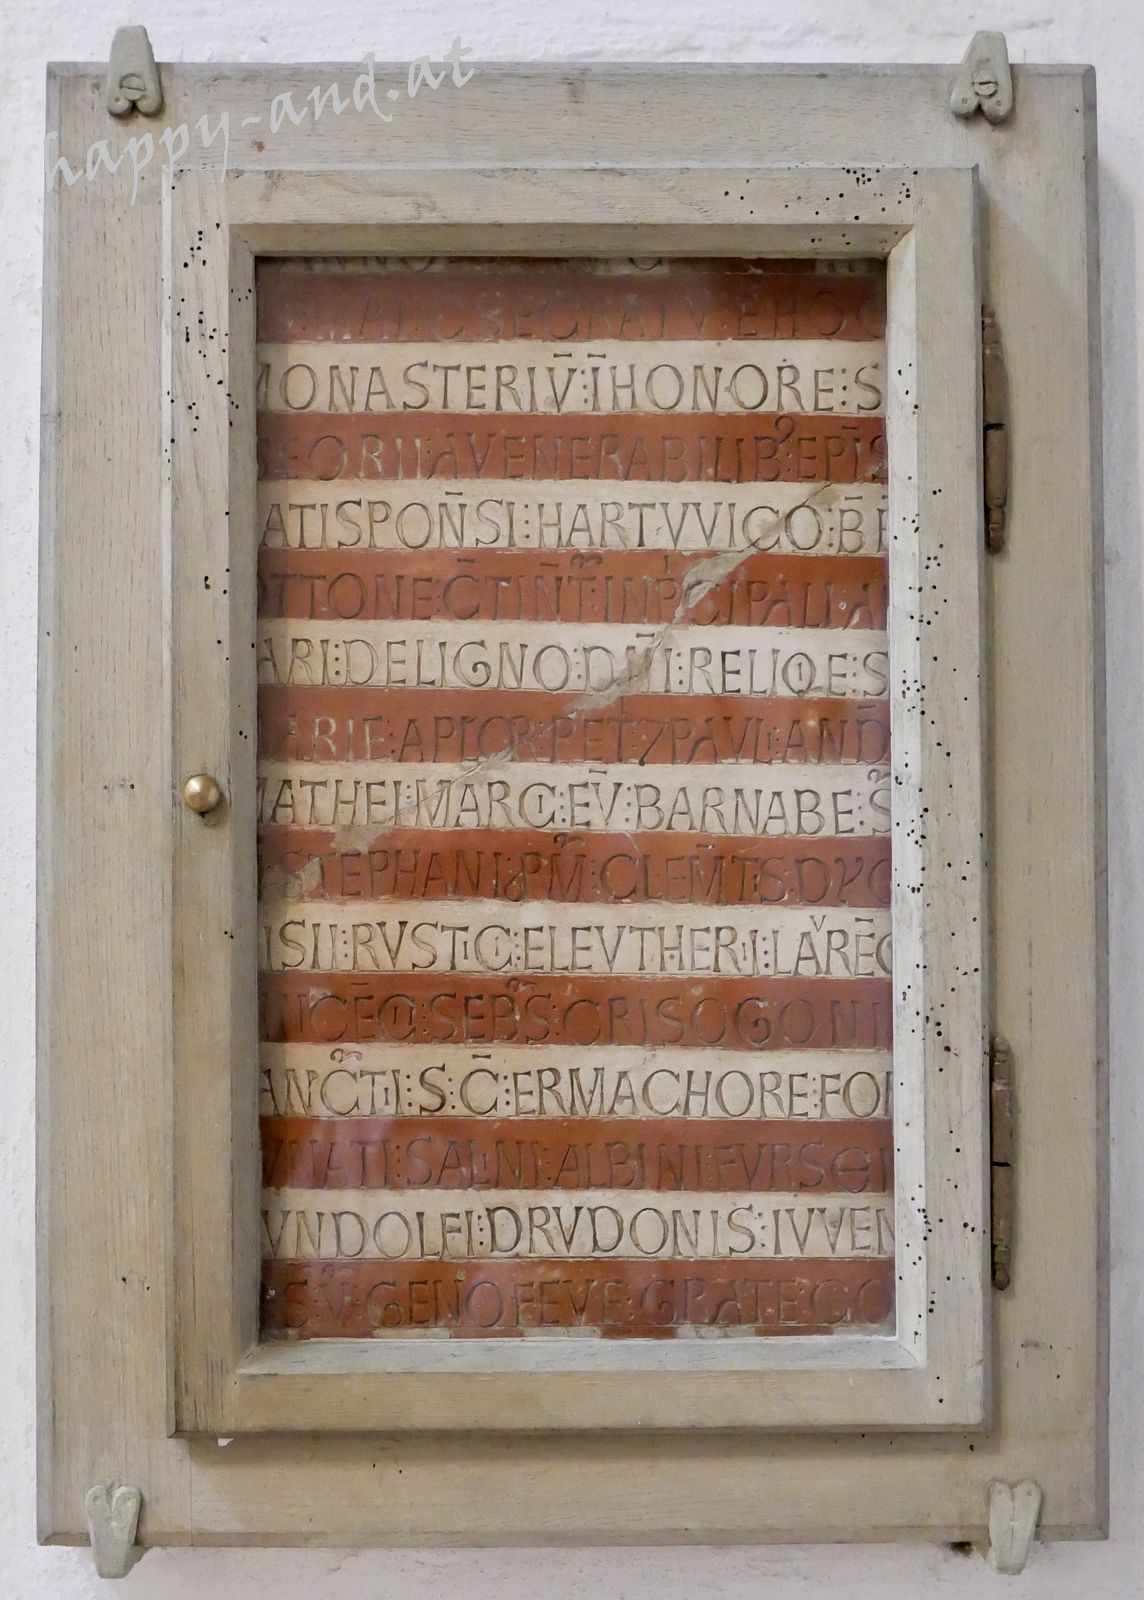 happy-and.at
MAI:C̄SECRATV̄:EHOC
MONASTERIV̄:ĪHONORE:S
EORII:AVENERABILIB9:EP̄IS
ATISPON̄SI:HARTVVICO:B̄
OTTONE:C̄TIN̄T̄:INPͥCIPALI:A
ARI:DELIGNO:DN̄I:RELIQE:S
ARIE:APLOR:PET:7PAVLI:AND̄
MATHEI:MARCI:EV̄:BARNABE:S̄
STEPHANI:PM̄:CLEM̄TIS:DYO
ISII:RVSTICI:ELEVTHERII:LAVRĒC
INCĒCII:SEB̄S:CRISOGONI
ANC̄TI:S:C̄:ERMACHORE:FOR
VNATI:SALINI:ALBINI:FVRSEI
VNDOLFI:DRVDONIS:IVVEN
IS:V̄:GENOFEVE:GRATE:CO